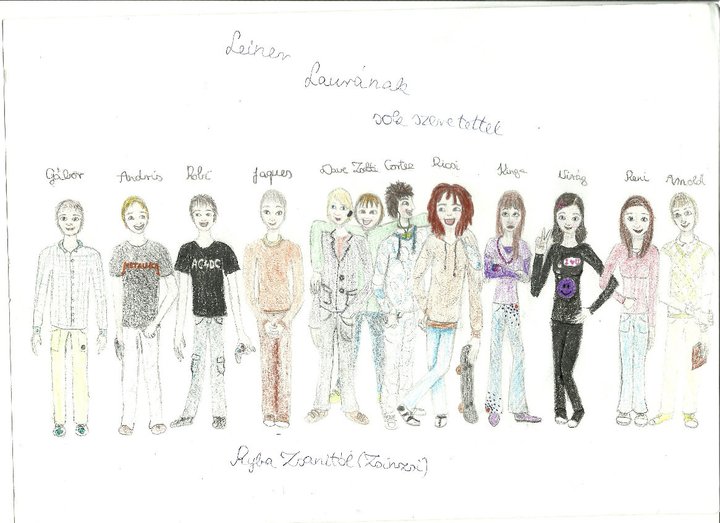 Leiner
Laurának
sok szeretettel
Gábor Andris Robi Jaques Dave Zsolti Cortez Ricsi Kinga Virág Reni Arnold
METALLICA
AC⚡DC
I ♥ U
Ryba Zsanitól (Zsinszi)